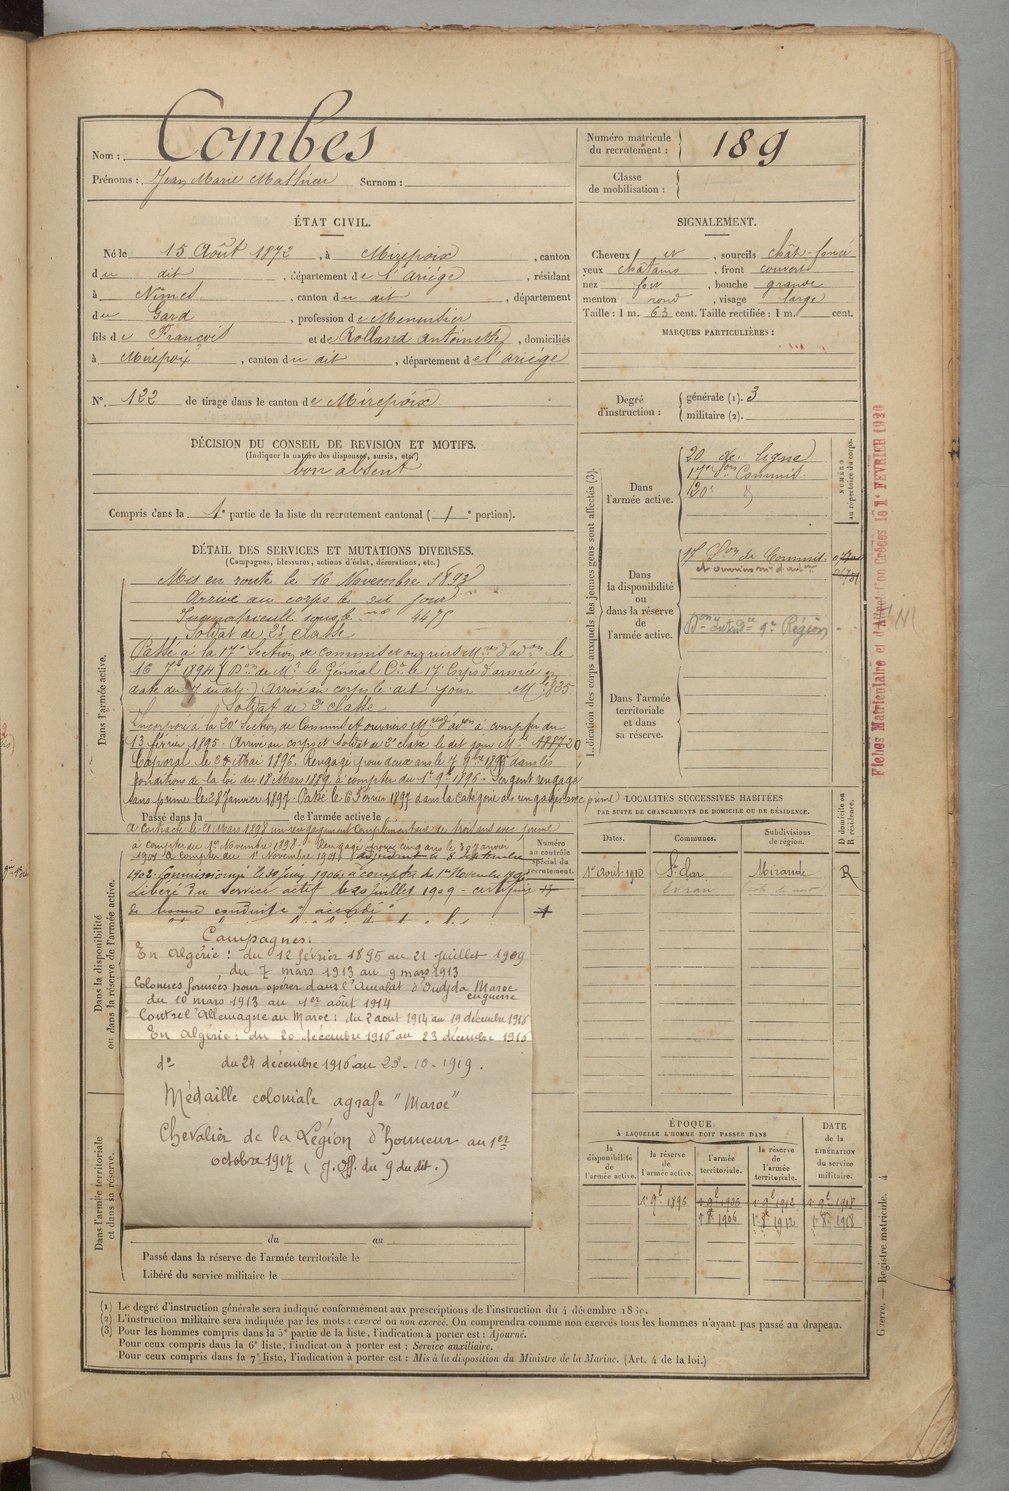 Nom : Combes
Prénoms : Jean Marie Mathieu Surnom :
Numéro matricule du recrutement : 189
Classe de mobilisation :
ÉTAT CIVIL.
Né le 15 Août 1872, à Mirepoix, canton
du dit, département de l'Ariège, résidant
à Nimes, canton du dit, département
du Gard, profession de Menuisier
fils de François et de Rolland Antoinette, domiciliés
à Mirepoix, canton du dit, département de l'Ariège
N° 122 de tirage dans le canton de Mirepoix
DÉCISION DU CONSEIL DE REVISION ET MOTIFS.
(Indiquer la nature des dispenses, sursis, etc.)
bon absent
Compris dans la 1e partie de la liste du recrutement cantonal ( 1e portion).
SIGNALEMENT.
Cheveux et, sourcils chât-foncé
yeux châtains, front couvert
nez fort, bouche grande
menton rond, visage large
Taille : 1 m. 63 cent. Taille rectifiée : 1 m. cent.
MARQUES PARTICULIÈRES :
Degré d'instruction : générale (1). 3
militaire (2).
DÉTAIL DES SERVICES ET MUTATIONS DIVERSES.
(Campagnes, blessures, actions d'éclat, décorations, etc.)
Dans l'armée active.
Mis en route le 16 Novembre 1893
Arrivé au corps le dit jour
Immatriculé sous le no 9475
Soldat de 2e classe
Passé à la 17e Section de commis et ouvriers Mres d'adon le
16 7bre 1894 ( Don de Mr le Général Ct le 17e Corps d'armée en
date du ) arrivé au corps le dit jour Mle 835
Soldat de 2e classe
Incorporé à la 20e Section de Commis et ouvriers Mres d'adon à compter du
13 février 1895. Arrivé au corps et soldat de 2e classe le dit jour Mle
Caporal le Mai 1896. Rengagé pour deux ans le dans les
conditions de la loi du 18 Mars 1889 à compter du 1er 9bre 1896. Sergent rengagé
sans prime le 28 Janvier 1897. Passé le Février 1897 dans la catégorie des rengagés avec prime
Passé dans la de l'armée active le
a contracté le Mars 1898 un rengagement complémentaire de trois ans avec prime
à compter du 1er Novembre 1898. Rengagé pour cinq ans le 30 Janvier
1901 à compter du 1er Novembre 1901. Adjudant le Septembre
1902. Commissionné le 30 Juin 1906 à compter du 1er Novembre
Libéré du service actif le 20 Juillet 1909 - certificat
de bonne conduite "accordé"
Dans la disponibilité ou dans la réserve de l'armée active.
Numéro au contrôle spécial du recrutement.
Campagnes :
En Algérie : du 12 février 1895 au 21 juillet 1909
du 7 mars 1913 au 9 mars 1913
Colonnes formées pour opérer dans l'Amalat d'Oudjda Maroc
en guerre
du 10 mars 1913 au 1er août 1914
Contre l'Allemagne au Maroc : du 2 aout 1914 au 19 décembre 1916
En Algérie : du 20 décembre 1916 au 23 décembre 1916
do du 24 décembre 1916 au 23-10-1919.
Médaille coloniale agrafe "Maroc"
Chevalier de la Légion d'honneur au 1er
octobre 1917 (J. Off. du 9 du dit.)
Dans l'armée territoriale et dans sa réserve.
du au
Passé dans la réserve de l'armée territoriale le
Libéré du service militaire le
Indication des corps auxquels les jeunes gens sont affectés (3).
NUMÉRO au répertoire du corps.
Dans l'armée active.
20 de ligne
17e Son Commis
20e
Dans la disponibilité ou dans la réserve de l'armée active.
Son de Commis
et ouvriers
Région
Dans l'armée territoriale et dans sa réserve.
LOCALITÉS SUCCESSIVES HABITÉES
PAR SUITE DE CHANGEMENTS DE DOMICILE OU DE RÉSIDENCE.
D domicile ou R résidence.
Dates. Communes. Subdivisions de région.
1er Août 1910 St Clar Mirande R
ÉPOQUE
À LAQUELLE L'HOMME DOIT PASSER DANS
DATE de la LIBÉRATION du service militaire.
la disponibilité de l'armée active. la réserve de l'armée active. l'armée territoriale. la réserve de l'armée territoriale.
1er 9bre 1896
1906 1912 1918
Fiches Matriculaire et d'
1er FEVRIER 1920
Guerre. — Registre matricule. 4
(1) Le degré d'instruction générale sera indiqué conformément aux prescriptions de l'instruction du 4 décembre
(2) L'instruction militaire sera indiquée par les mots : exercé ou non exercé. On comprendra comme non exercés tous les hommes n'ayant pas passé au drapeau.
(3) Pour les hommes compris dans la 5e partie de la liste, l'indication à porter est : Ajourné.
Pour ceux compris dans la 6e liste, l'indication à porter est : Service auxiliaire.
Pour ceux compris dans la 7e liste, l'indication à porter est : Mis à la disposition du Ministre de la Marine. (Art. 4 de la loi.)